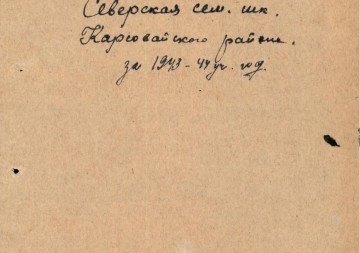 Северская сем. шк.
Карсовайского района.
за 1943-44 уч. год.